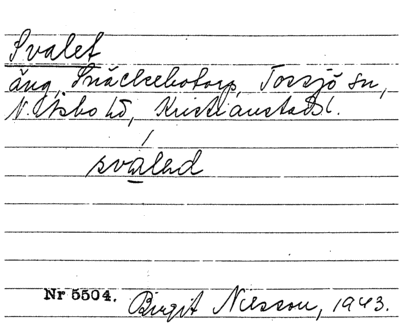 Svalet
äng, Snäckebotorp, Torsjö sn,
N. Åsbo hd, Kristianstads l.
svaled
Nr 5504. Birgit Nilsson, 1943.